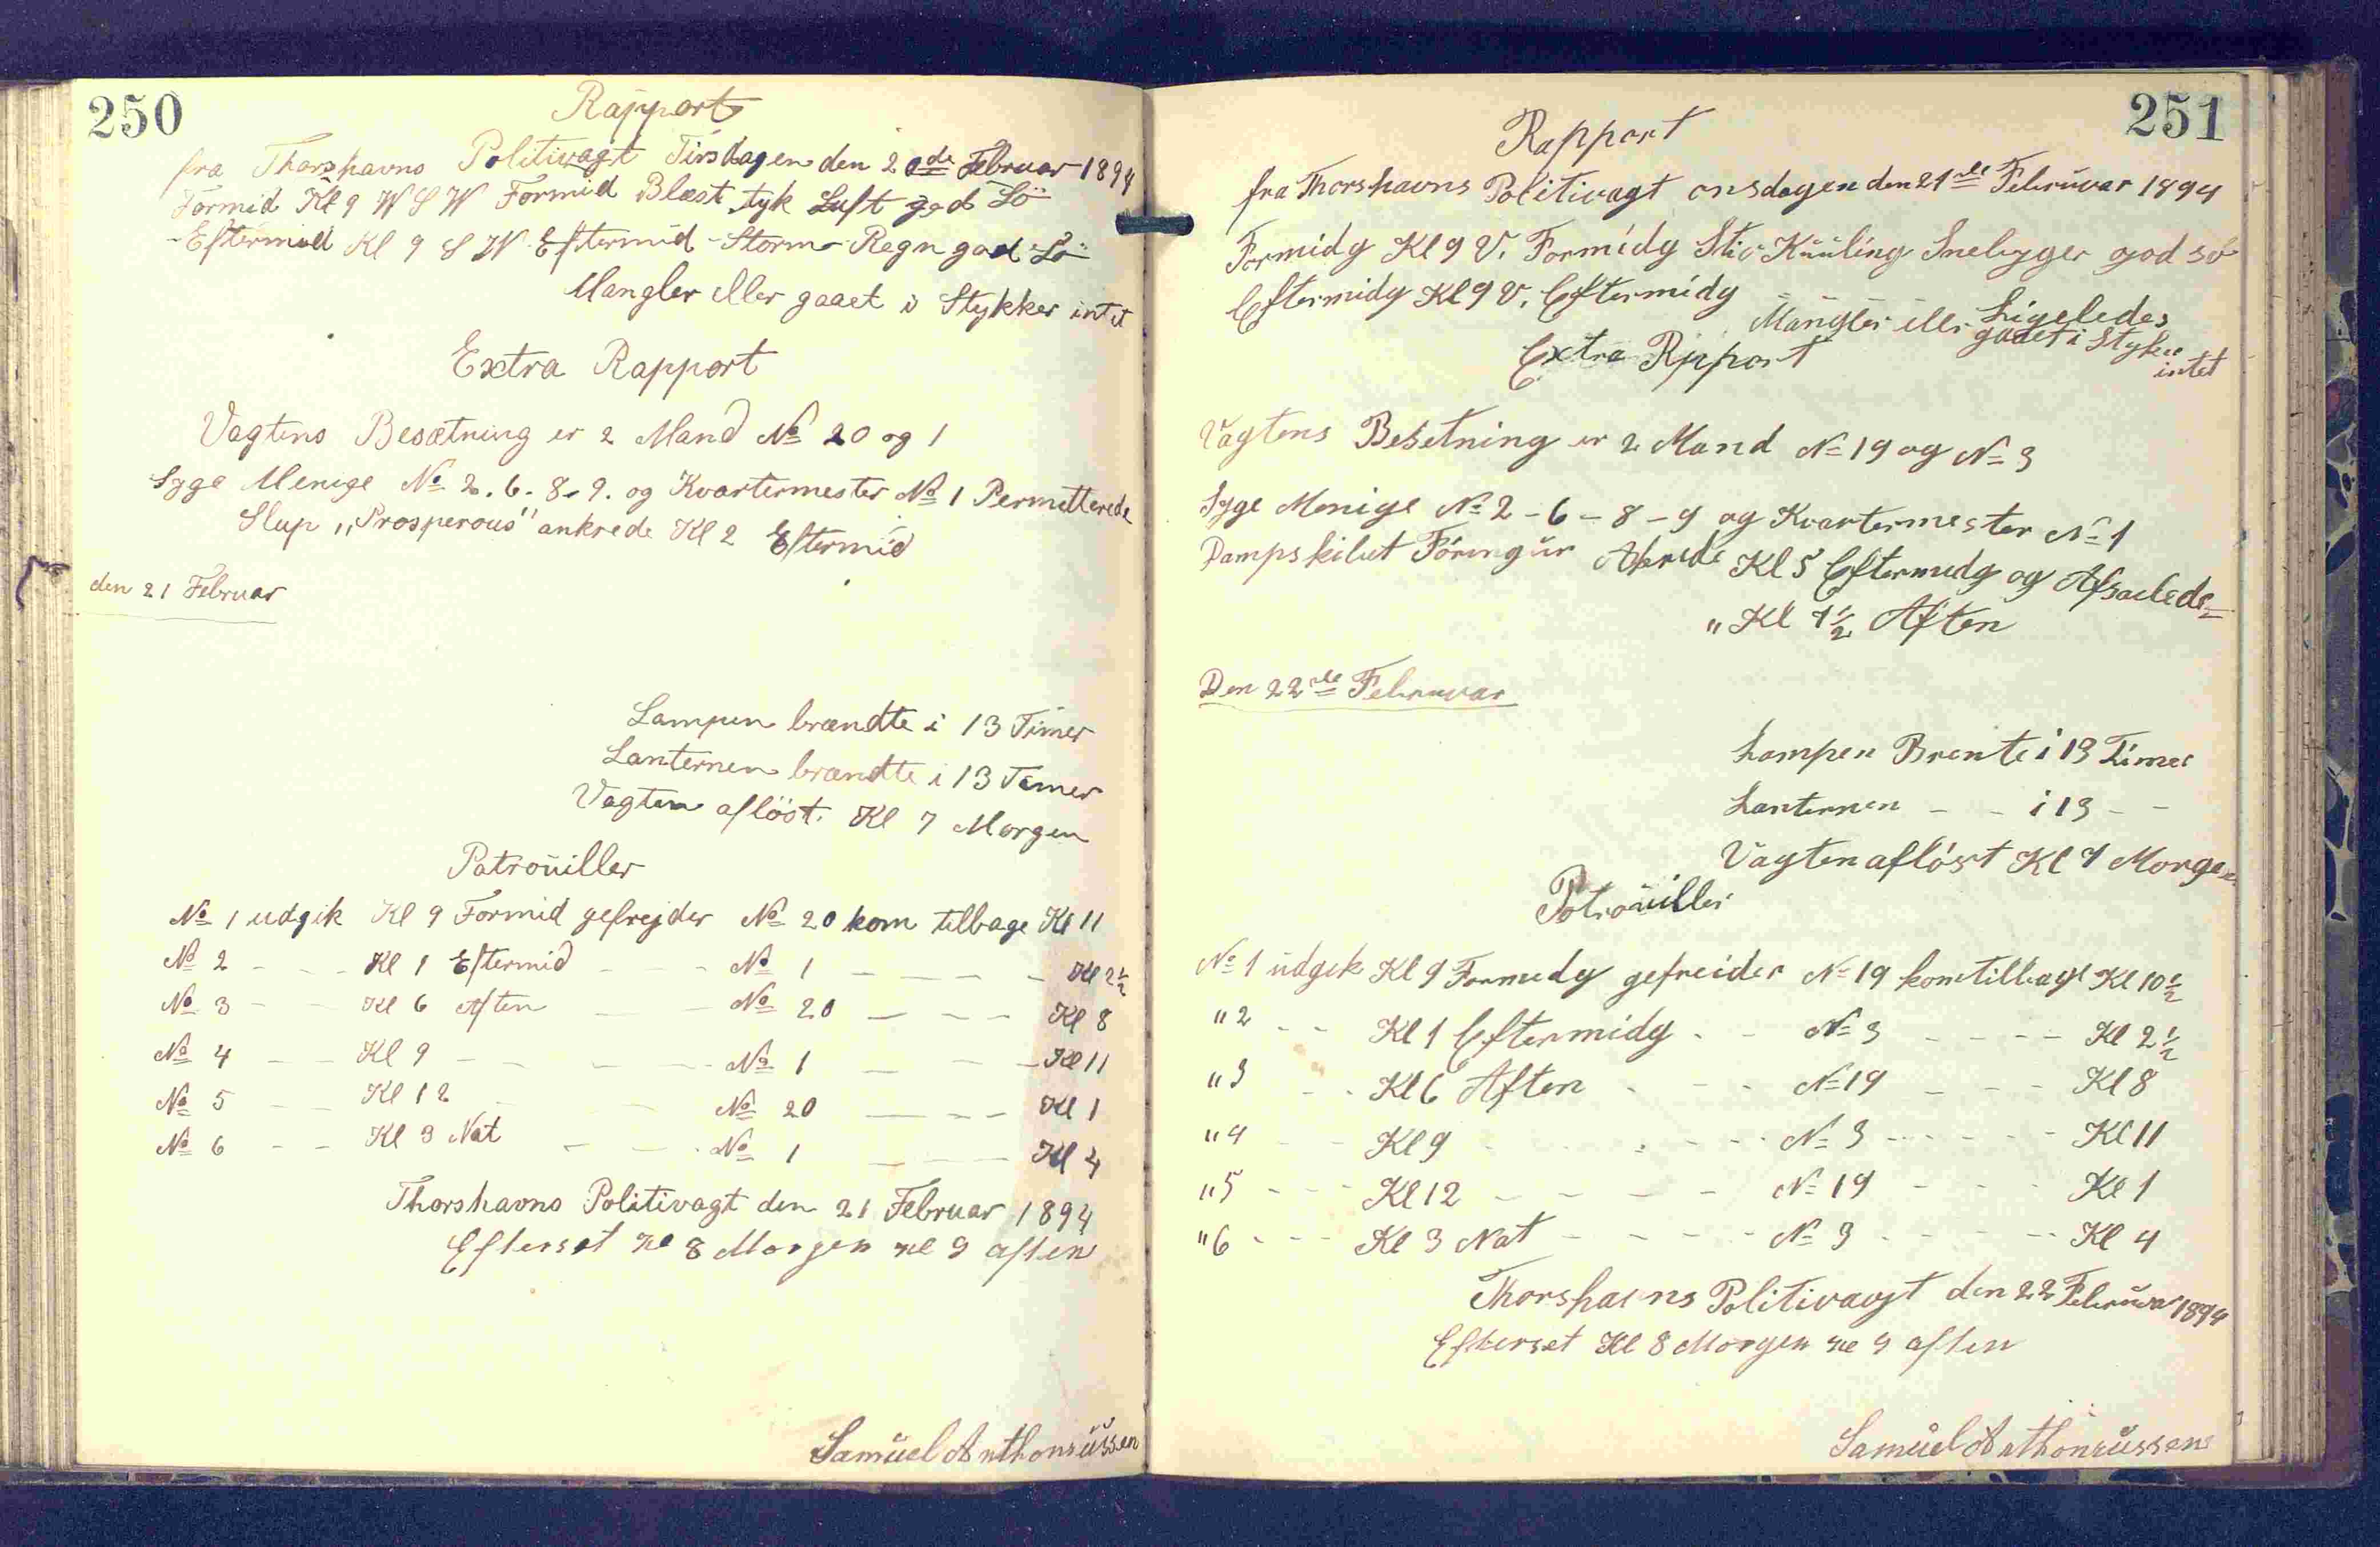 250
Rapport
fra Thorshavns Politivagt Tirsdagen den 20de Februar 1894
Formid Kl 9 W S W Formid Blæst tyk Luft god Sö
Eftermid Kl 9 S W Eftermid Storm Regn god Sö
Mangler eller gaaet i Stykker intet
Extra Rapport
Vagtens Besætning er 2 Mand No 20 og 1
Syge Menige No 2. 6. 8. 9. og Kvartermester No 1 Permitterede
Slup „Prosperous" ankrede Kl 2 Eftermid
den 21 Februar
Lampen brændte i 13 Timer
Lanternen brændte i 13 Timer
Vagten aflöst Kl 7 Morgen
Patrouiller
No 1 udgik Kl 9 Formid gefrejder No 20 kom tilbage Kl 11
No 2 - - - Kl 1 Eftermid - - No 1 - - - - Kl 2 1/2
No 3 - - Kl 6 Aften - - No 20 - - - Kl 8
No 4 - - Kl 9 - - - - No 1 - - - Kl 11
No 5 - - Kl 12 - - No 20 - - - Kl 1
No 6 - - Kl 3 Nat - - - No 1 - - - Kl 4
Thorshavns Politivagt den 21 Februar 1894
Efterset Kl 8 Morgen Kl 9 aften
Samuel Anthoniussen
251
Rapport
fra Thorshavns Politivagt onsdagen den 21de Februvar 1894
Formidg Kl 9 V. Formidg Stiv Kuuling Snebyger god sö
Eftermidg Kl 9 V. Eftermidg - - - - Ligeledes
Mangler eller gaaet i Styker
intet
Extra Rapport
Vagtens Besetning er 2 Mand No 19 og No 3
Syge Menige No 2 - 6 - 8 - 9 og Kvartermester No 1
Dampskibet Föringur Akrede Kl 5 Eftermidg og Afsaelede
" Kl 7 1/2 Aften
Den 22de Februvar
Lampen Brente i 13 Timer
Lanternen - - i 13 - -
Vagten aflöst Kl 7 Morgen
Patrouiller
No 1 udgik Kl 9 Formidg gefreider No 19 kom tilbage Kl 10 1/2
"2 - - Kl 1 Eftermidg - - No 3 - - - - Kl 2 1/2
"3 - - Kl 6 Aften - - - No 19 - - - Kl 8
"4 - - Kl 9 - - - - No 3 - - - - Kl 11
"5 - - - Kl 12 - - - - No 19 - - - Kl 1
"6 - - - Kl 3 Nat - - - - No 3 - - - - Kl 4
Thorshavns Politivagt den 22 Februvar 1894
Efterset Kl 8 Morgen Kl 9 aften
Samuel Anthoniussen